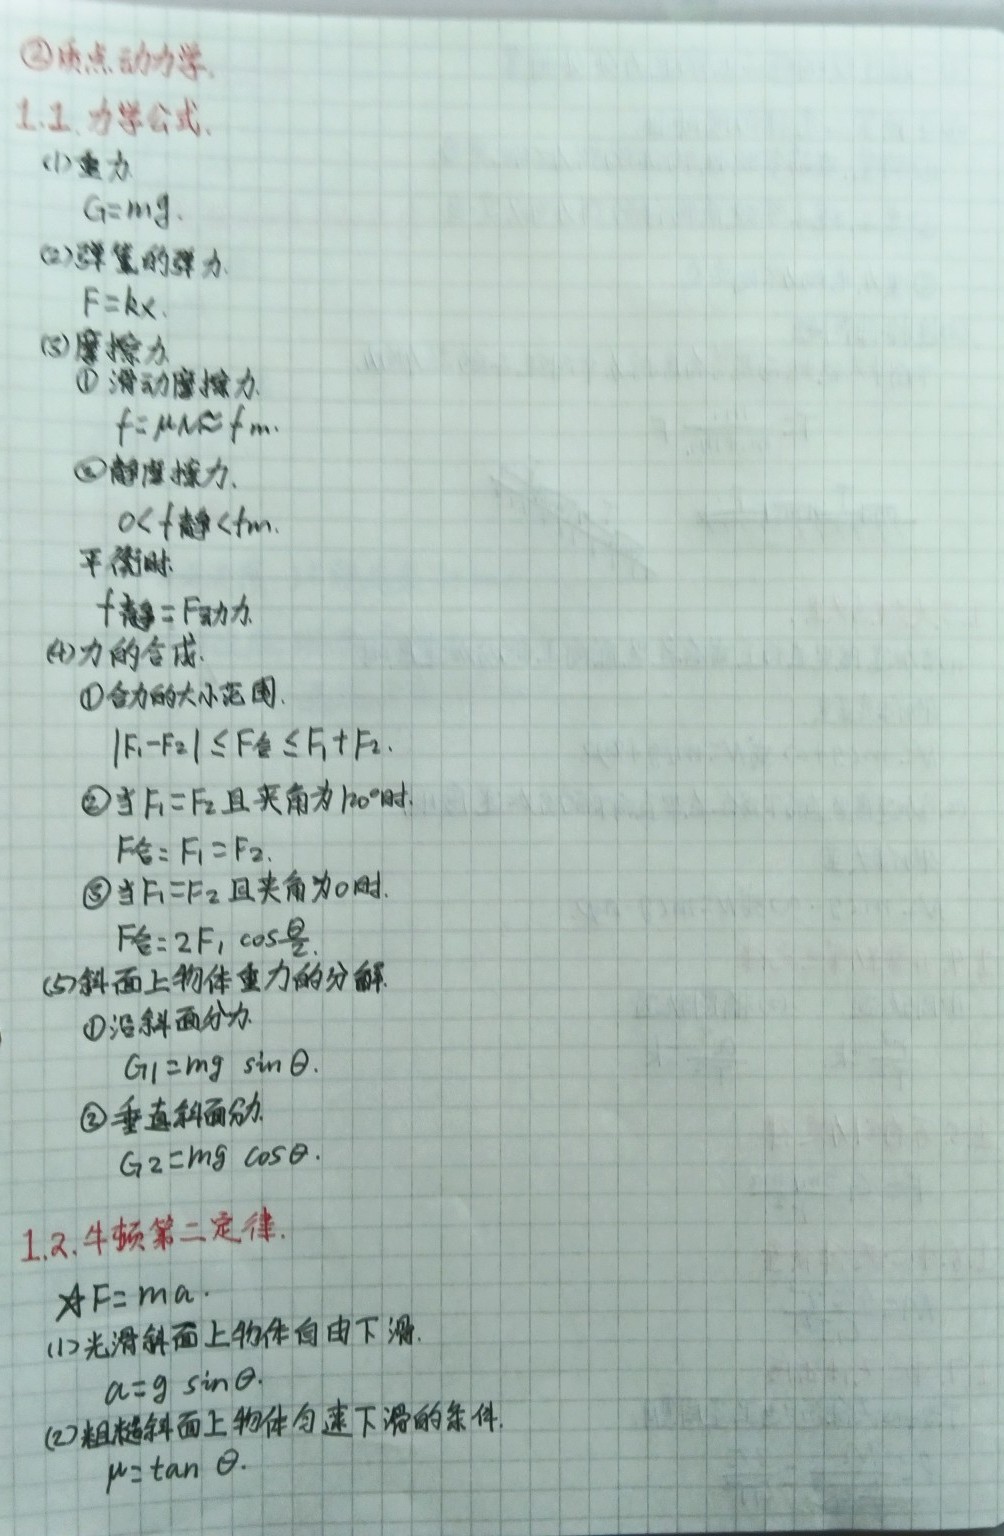 ②质点动力学.
1.1.力学公式.
(1)重力
G=mg.
(2)弹簧的弹力.
F=kx.
(3)摩擦力
①滑动摩擦力.
f=μN≈fm.
②静摩擦力.
0<f静<fm.
平衡时.
f静=F动力.
(4)力的合成.
①合力的大小范围.
|F1-F2|≤F合≤F1+F2.
②当F1=F2且夹角为120°时.
F合=F1=F2.
③当F1=F2且夹角为θ时.
F合=2F1 cosθ/2.
(5)斜面上物体重力的分解.
①沿斜面分力.
G1=mg sinθ.
②垂直斜面分力.
G2=mg cosθ.
1.2.牛顿第二定律.
☆F=ma.
(1)光滑斜面上物体自由下滑.
a=g sinθ.
(2)粗糙斜面上物体匀速下滑的条件.
μ=tan θ.